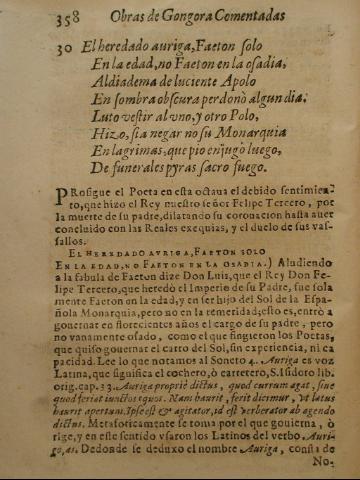 358 Obras de Gongora Comentadas
30 El heredado auriga, Faeton solo
En la edad, no Faeton en la osadia,
Al diadema de luciente Apolo
En sombra obscura perdonò algun dia.
Luto vestir al vno, y otro Polo,
Hizo, si a negar no su Monarquia
En lagrimas, que pio enjugò luego,
De funerales pyras sacro fuego.
PRosigue el Poeta en esta octaua el debido sentimien-
to, que hizo el Rey nuestro señor Felipe Tercero, por
la muerte de su padre, dilatando su coronacion hasta auer
concluido con las Reales exequias, y el duelo de sus vas-
sallos.
EL HEREDADO AVRIGA, FAETON SOLO
EN LA EDAD, NO FAETON EN LA OSADIA.) Aludiendo
a la fabula de Faeton dize Don Luis, que el Rey Don Fe-
lipe Tercero, que heredò el Imperio de su Padre, fue sola
mente Faeton en la edad, y en ser hijo del Sol de la Espa-
ñola Monarquia, pero no en la temeridad; esto es, entrò a
gouernar en florecientes años el cargo de su padre, pero
no vanamente osado, como el que fingieron los Poetas,
que quiso gouernar el carro del Sol, sin experiencia, ni ca
pacidad. Lee lo que notamos al Soneto 4. Auriga es voz
Latina, que significa el cochero, ò carretero, S. Isidoro lib.
orig. cap. 33. Auriga propriè dictus, quod currum agat, siue
quod feriat iunctos equos. Nam haurit, ferit dicimur, Vt latus
haurit apertum. Ipse est & agitator, id est verberator ab agendo
dictus. Metaforicamente se toma por el que gouierna, ò
rige, y en este sentido vsaron los Latinos del verbo Auri-
go, as. De donde se deduxo el nombre Auriga, consta de
No-